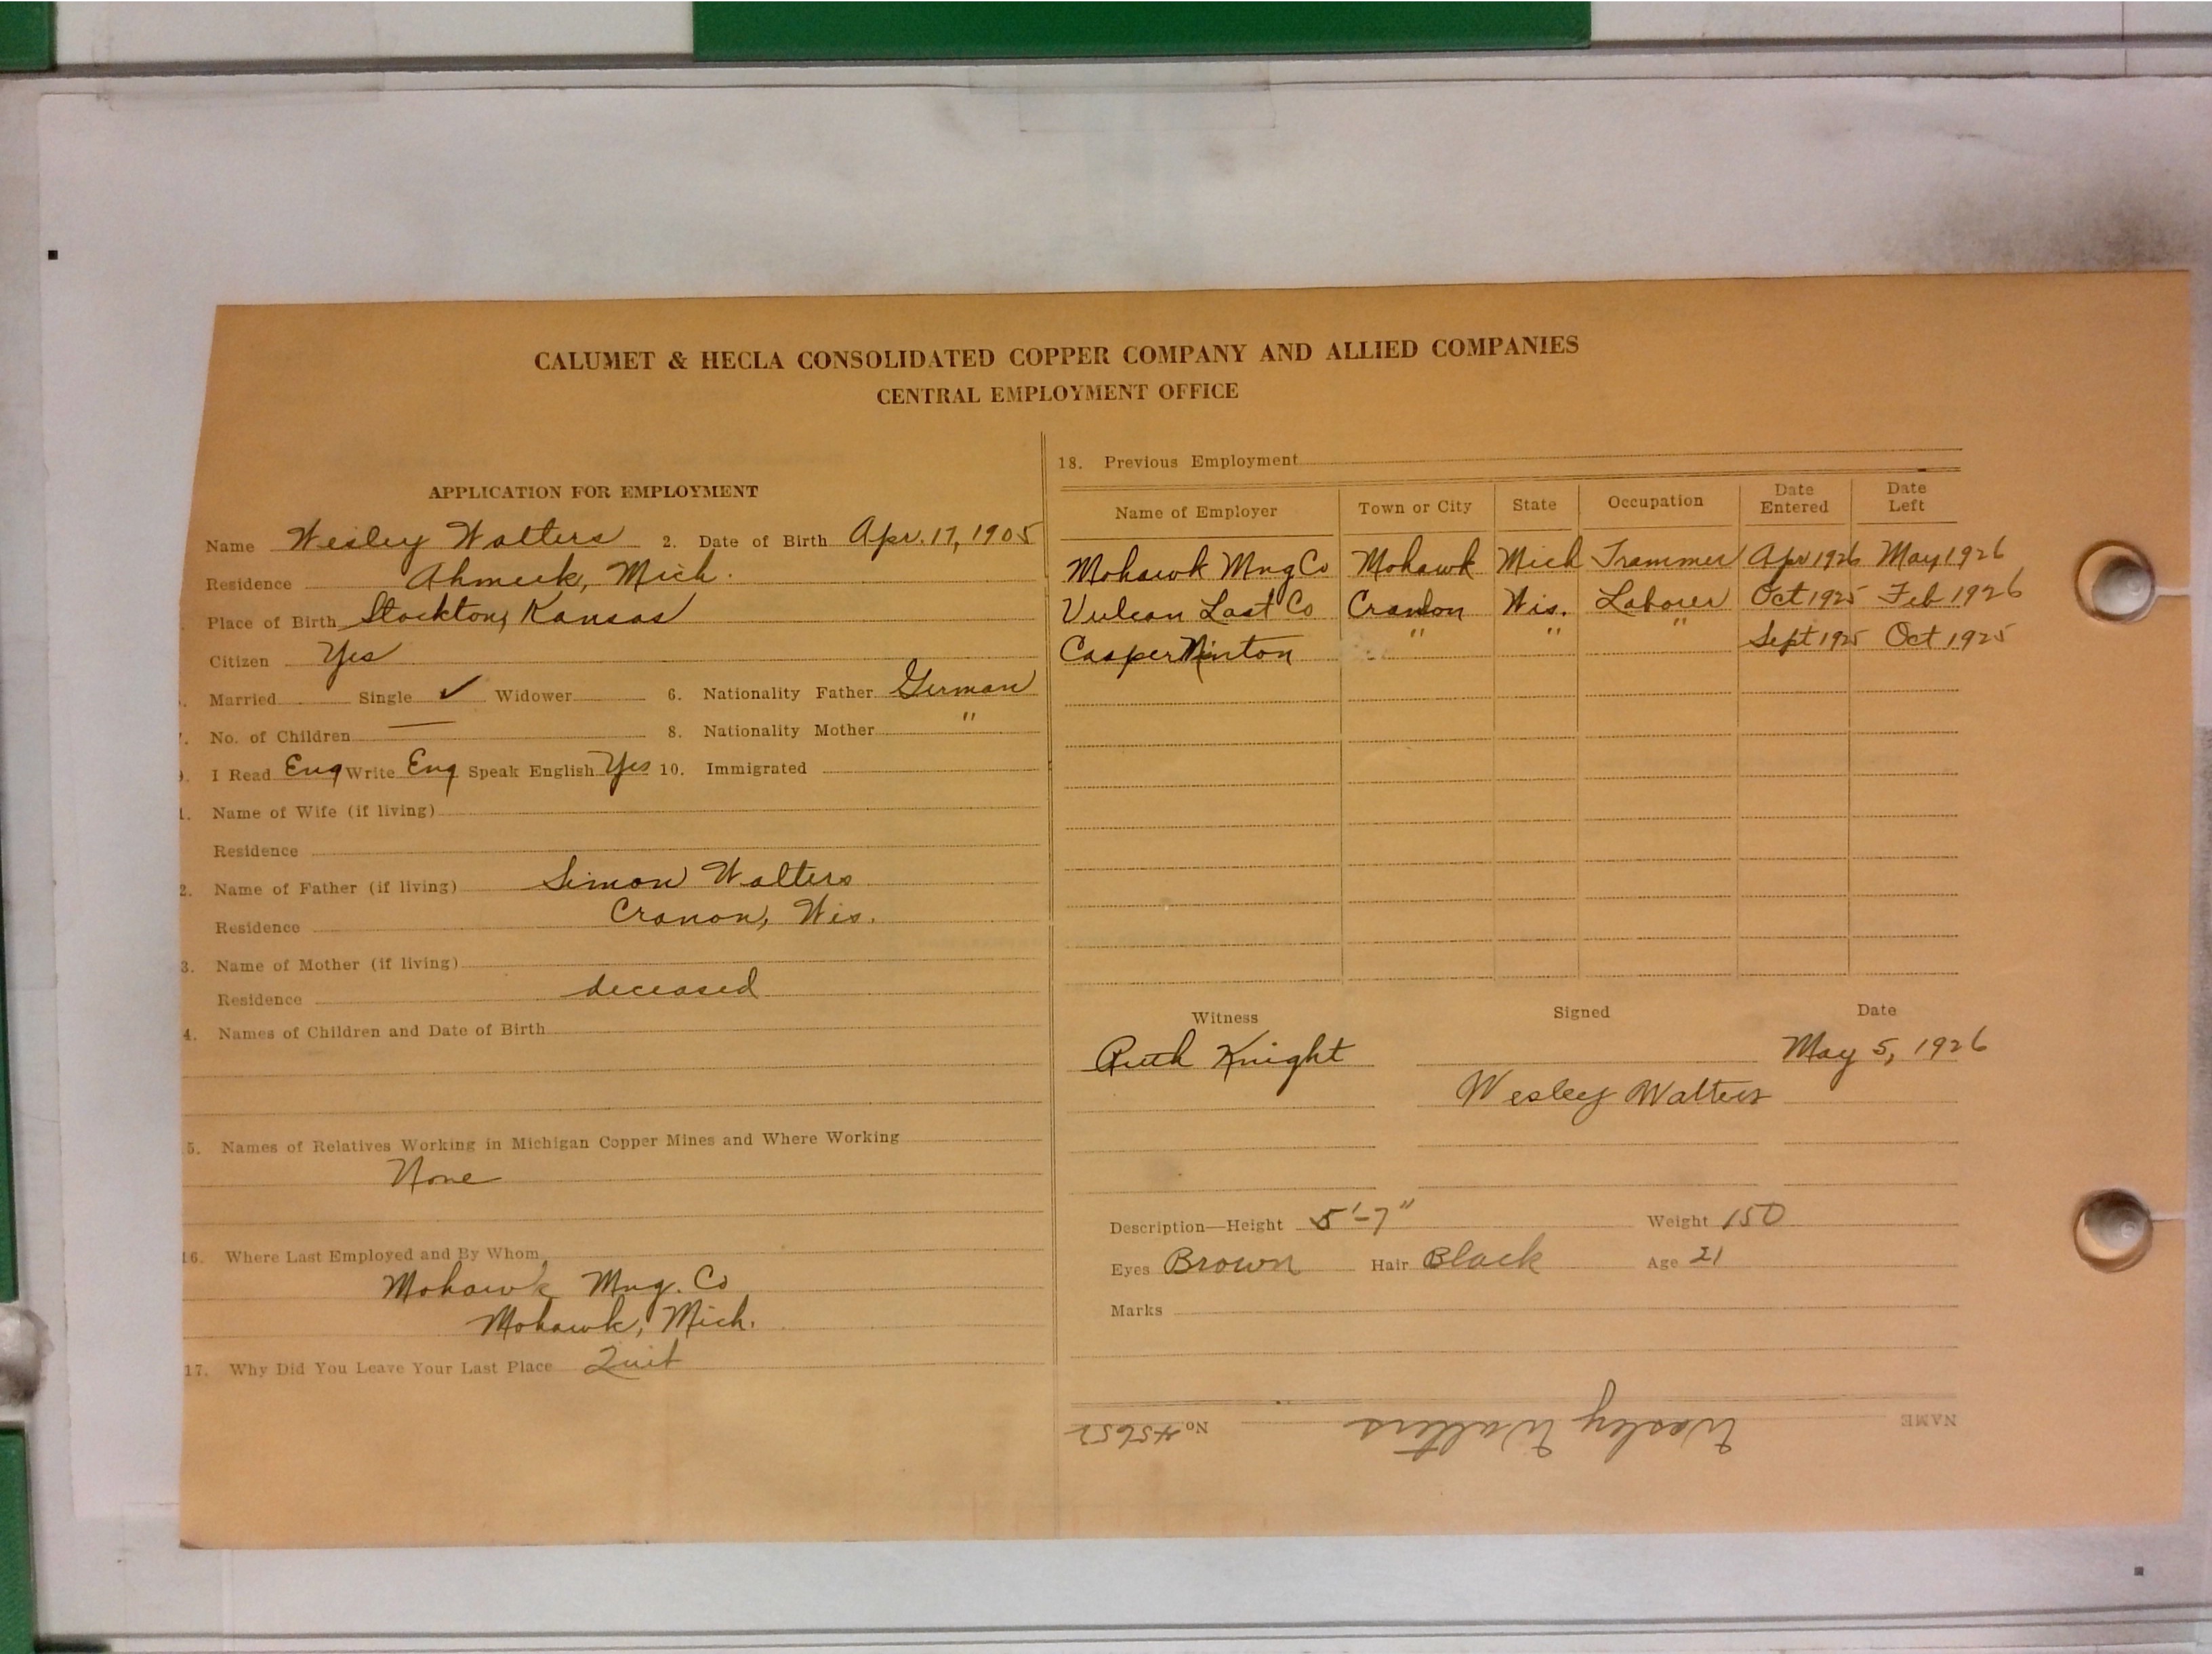 CALUMET & HECLA CONSOLIDATED COPPER COMPANY AND ALLIED COMPANIES
CENTRAL EMPLOYMENT OFFICE
APPLICATION FOR EMPLOYMENT
Name Wesley Walters 2. Date of Birth Apr. 17, 1905
Residence Ahmeek, Mich.
Place of Birth Stockton, Kansas
Citizen Yes
Married Single ✓ Widower 6. Nationality Father German
7. No. of Children — 8. Nationality Mother "
9. I Read Eng Write Eng Speak English Yes 10. Immigrated
1. Name of Wife (if living)
Residence
2. Name of Father (if living) Simon Walters
Residence Cranon, Wis.
3. Name of Mother (if living)
Residence deceased
4. Names of Children and Date of Birth
5. Names of Relatives Working in Michigan Copper Mines and Where Working
None
16. Where Last Employed and By Whom
Mohawk Mng. Co
Mohawk, Mich.
17. Why Did You Leave Your Last Place Quit
18. Previous Employment
Name of Employer Town or City State Occupation Date Entered Date Left
Mohawk Mng Co Mohawk Mich Trammer Apr 1926 May 1926
Vulcan Last Co Crandon Wis. Laborer Oct 1925 Feb 1926
Casper Minton " " " Sept 1925 Oct 1925
Witness Signed Date
Ruth Knight May 5, 1926
Wesley Walters
Description—Height 5'-7" Weight 150
Eyes Brown Hair Black Age 21
Marks
NAME Wesley Walters No. 45652